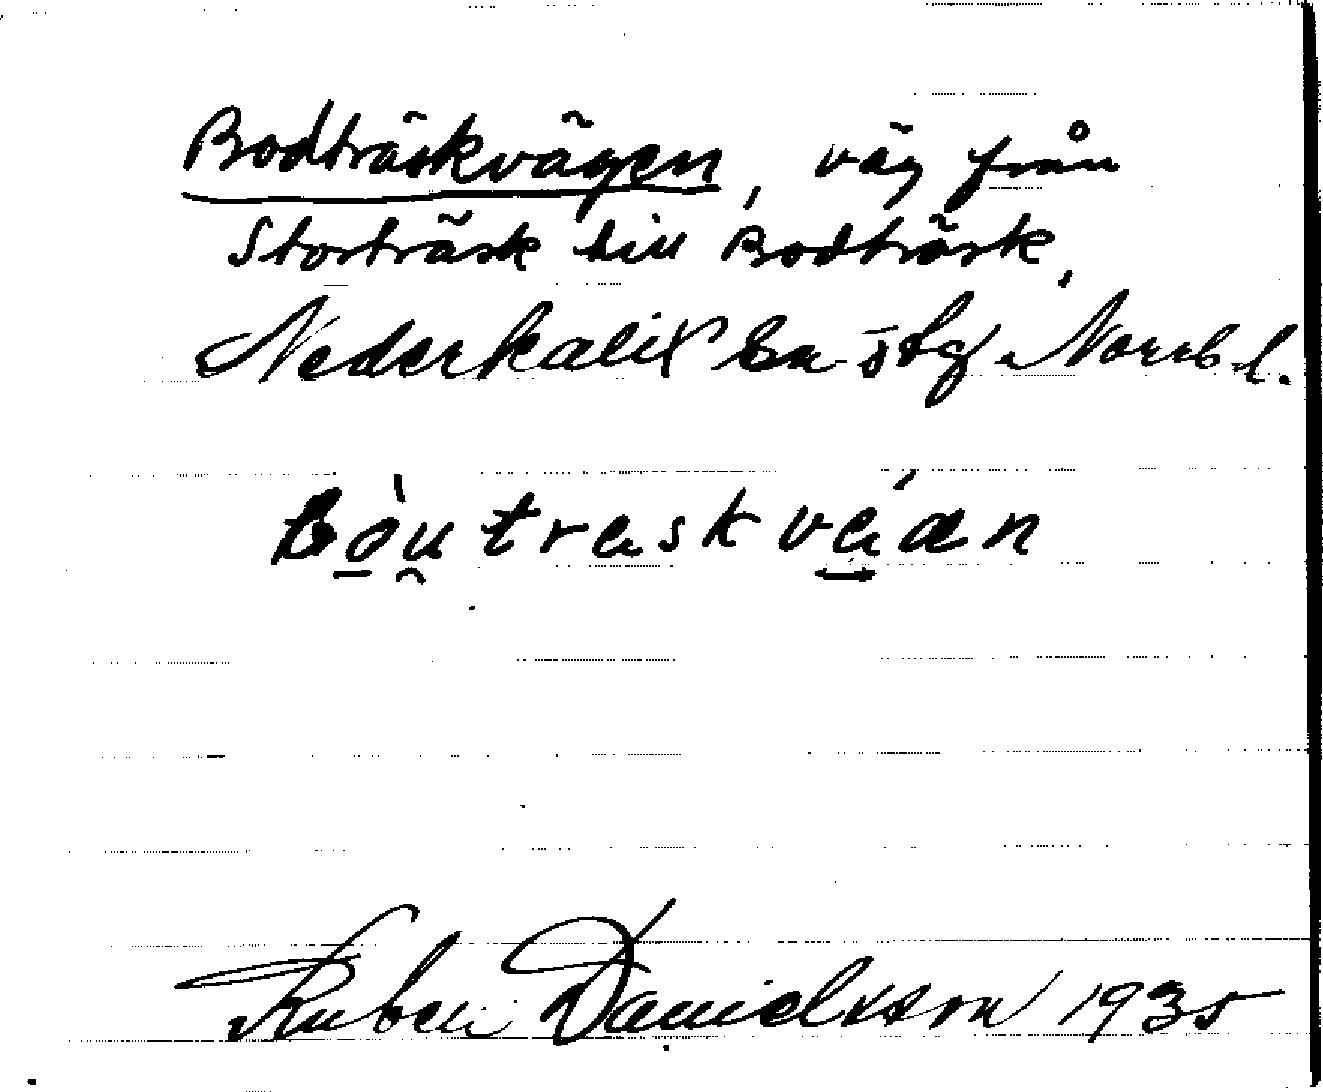 Bodträskvägen, väg från
Storträsk till Bodträsk,
Nederkalix sn
Norrb. l.
Ruben Danielsson 1935